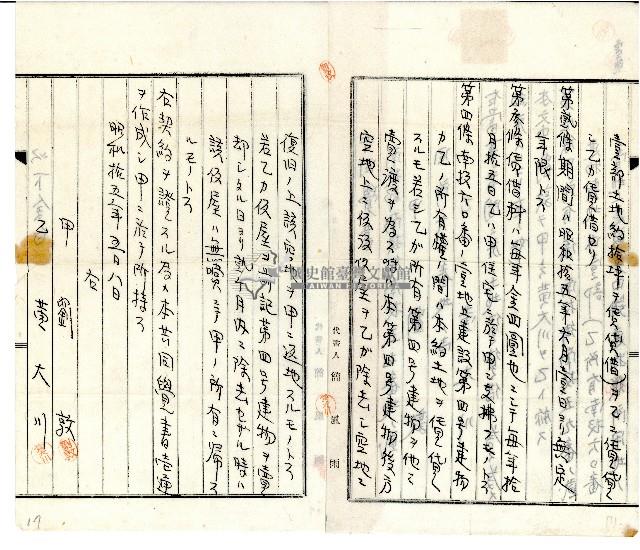 壹部土地約拾坪ヲ賃貸借(甲ヲ乙ニ賃貸
シ乙カ賃借)セリ
第貳條期間ハ昭和拾五年六月壹日ヨリ無定
年限トス
第參條賃借料ハ每年金四圓也ニシテ每年拾
月拾五日乙ハ甲住宅ニ於テ甲ニ支拂フモノトス
第四條南投六〇番ノ壹地上建設第四号建物
カ乙ノ所有權ノ間ハ本約土地ヲ賃貸
スルモ若シ乙カ所有第四号建物ヲ他ニ
賣渡ヲ為ス時ハ本第四号建物後方
空地上ニ假設ヲ乙カ除去シ空地ニ
復旧ノ上該空地ヲ甲ニ返地スルモノトス
若乙カ仮屋ヲ前記第四号建物ヲ賣
却シタル日ヨリ貳ヶ月内ニ除去セザル時ハ
該仮屋ハ無償ニテ甲ノ所有ニ帰ス
ルモノトス
右契約ヲ證スル為メ本共同覺書壹通
ヲ作成シ甲ニ於テ所持ス
昭和拾五年五月八日
右
甲 劉 敦
乙 黄大川
代書人 簡 風 雨
國史館臺灣文獻館
TAIWAN HISTORICA
17